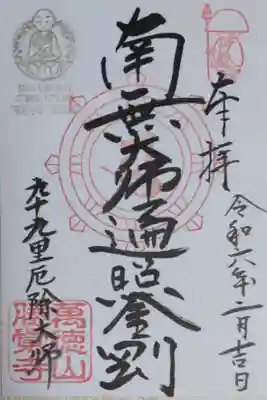 奉拝
令和六年二月吉日
南無大師遍照金剛
九十九里厄除大師
萬徳山
勝覚寺